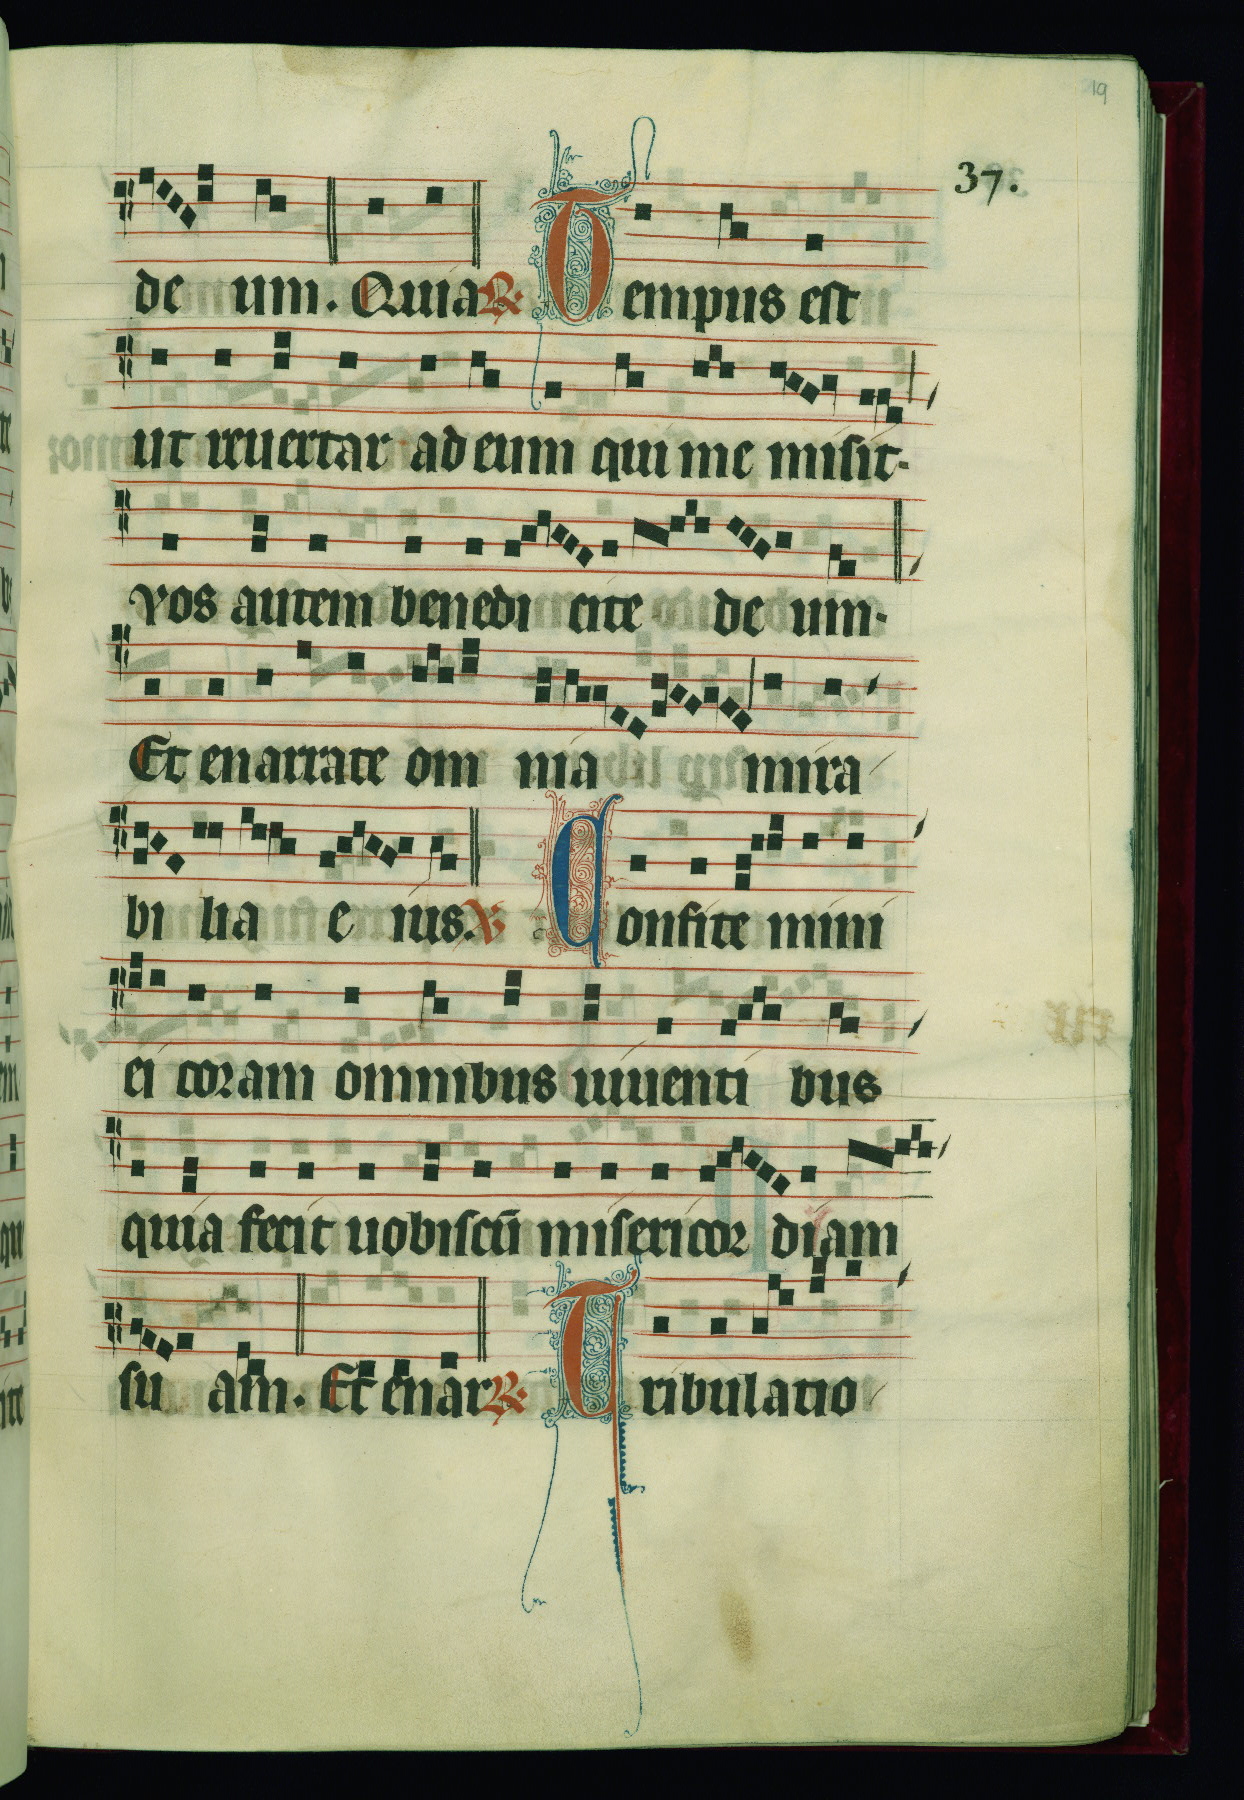 19
37.
de um. Quia ℟. Tempus est
ut reuertar ad eum qui me misit.
vos autem benedi cite de um.
Et enarrate om nia mira
bi lia e ius. ℣ Confite mini
ei coram omnibus uiuenti bus
quia fecit uobiscū misericor diam
su am. Et enar ℟. Tribulatio